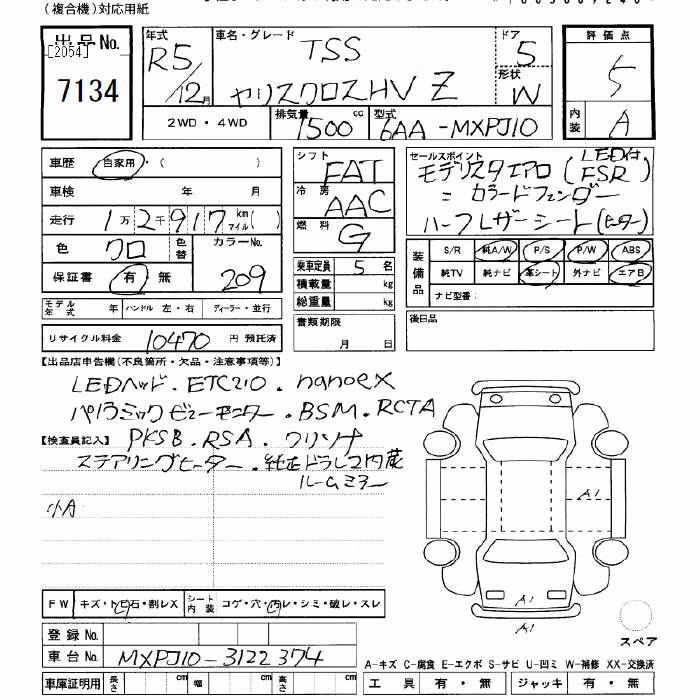 (複合機)対応用紙
出品No.
[2054]
7134
年式
R5/12月
車名・グレード
TSS
ヤリスクロスHV Z
ドア
5
形状
W
評価点
5
内装
A
2WD・4WD
排気量
1500cc
型式
6AA-MXPJ10
車歴 自家用・( )
車検 年 月
走行 1万2千917 km マイル ( )
色 クロ 色替 カラーNo. 209
保証書 有 無
モデル年式 年 ハンドル 左・右 ディーラー・並行
リサイクル料金 10470 円 預託済
シフト FAT
冷房 AAC
燃料 G
乗車定員 5 名
積載量 kg
総重量 kg
書類期限
月 日
セールスポイント
モデリスタエアロ (LED付 FSR)
= カラードフェンダー
ハーフレザーシート(ヒーター)
装備品
S/R 純A/W P/S P/W ABS
純TV 純ナビ 革シート 外ナビ エアB
ナビ型番:
後日品
【出品店申告欄(不良箇所・欠品・注意事項等)】
LEDヘッド . ETC2.0 . nanoeX
パノラミックビューモニター . BSM . RCTA
【検査員記入】
PKSB . RSA . クリソナ
ステアリングヒーター . 純正ドラレコ内蔵
ルームミラー
小A
A1
A1
A1
FW キズ・トビ石・割レX シート内装 コゲ・穴・汚レ・シミ・破レ・スレ
登録No.
車台No. MXPJ10-3122374
車庫証明用 長さ cm 幅 cm 高さ cm
スペア
A-キズ C-腐食 E-エクボ S-サビ U-凹ミ W-補修 XX-交換済
工具 有・無 ジャッキ 有・無